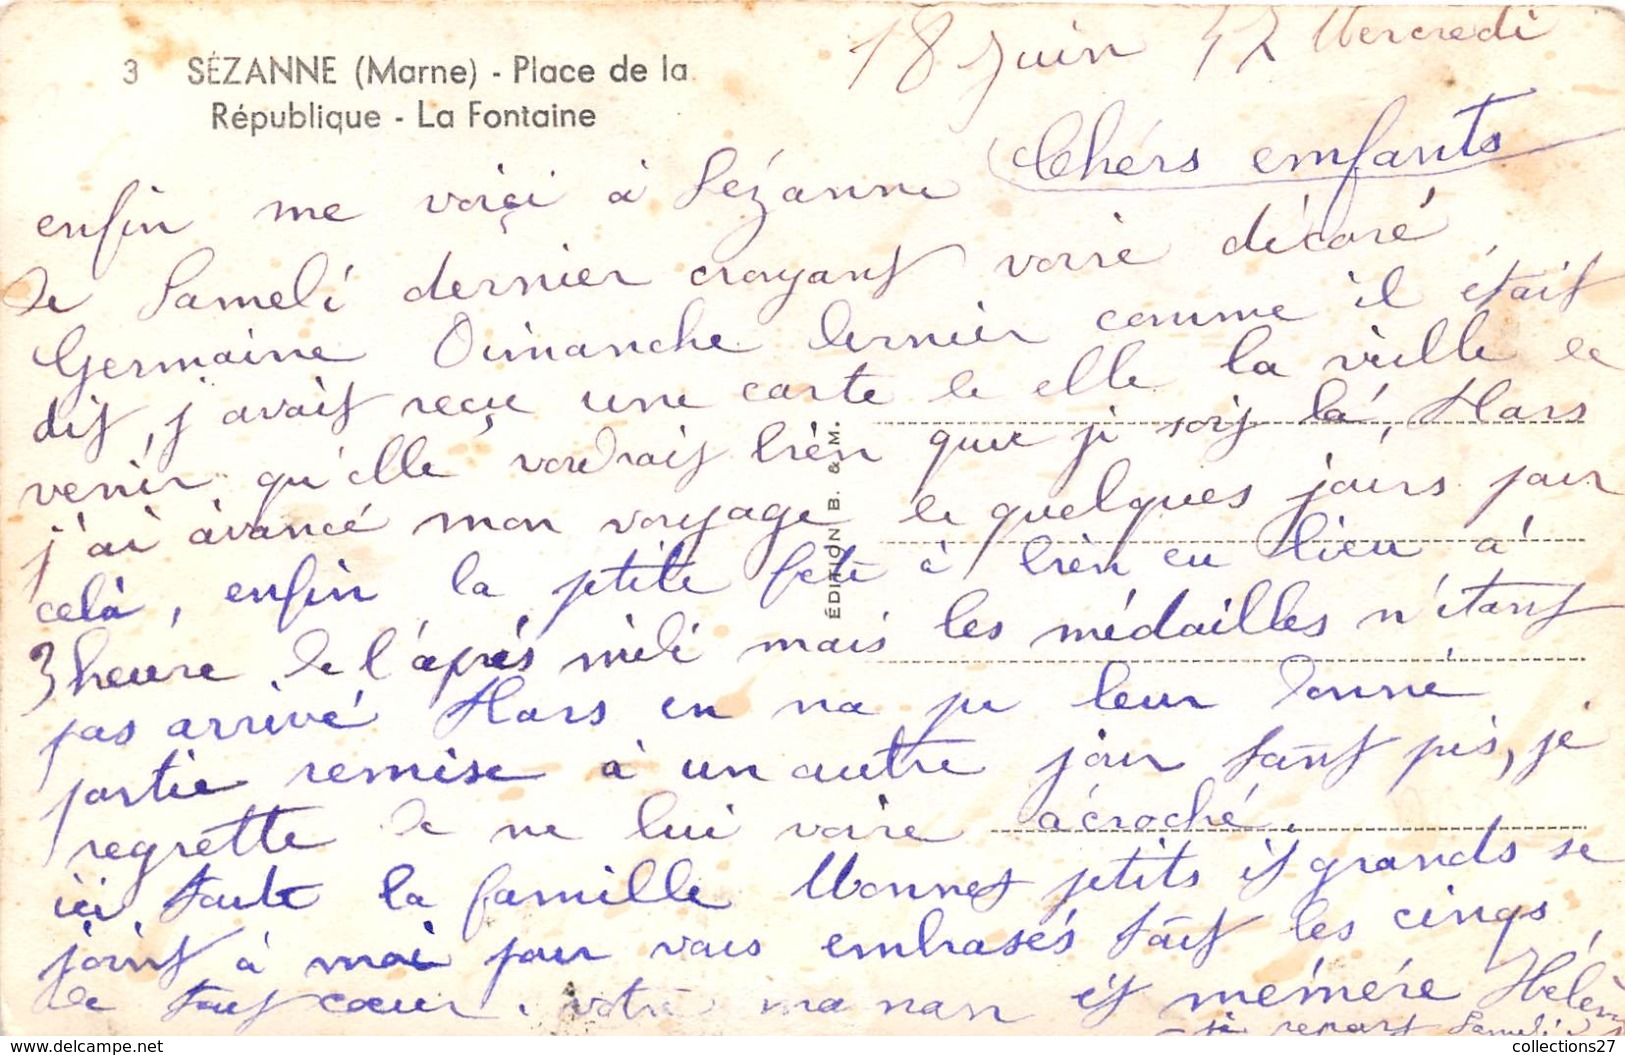 18 Juin 52 Mercredi
3 SÉZANNE (Marne) - Place de la
République - La Fontaine
Chérs enfants
enfin me voiçi à Sézanne
de Samedi dernier croyant voire décoré
Germaine Dimanche dernier comme il était
dit, j'avait reçu une carte de elle la veille de
venir qu'elle voudrait bien que je soit là, Alors
j'ai avancé mon voyage de quelques jours pour
celà, enfin la petite fete à bien eu lieu à
3 heure de l'après midi mais les médailles n'étant
pas arrivé Alors on na pu leur donné
partie remise à un autre jour tant pis, je
regrette de ne lui voire acroché.
ici toute la famille Monnet petits et grands se
joint à moi pour vous embrasés tout les cinqs
de tout cœur. votre maman et mémére Hélène
je repart Samedi
ÉDITION B. & M.
collections27